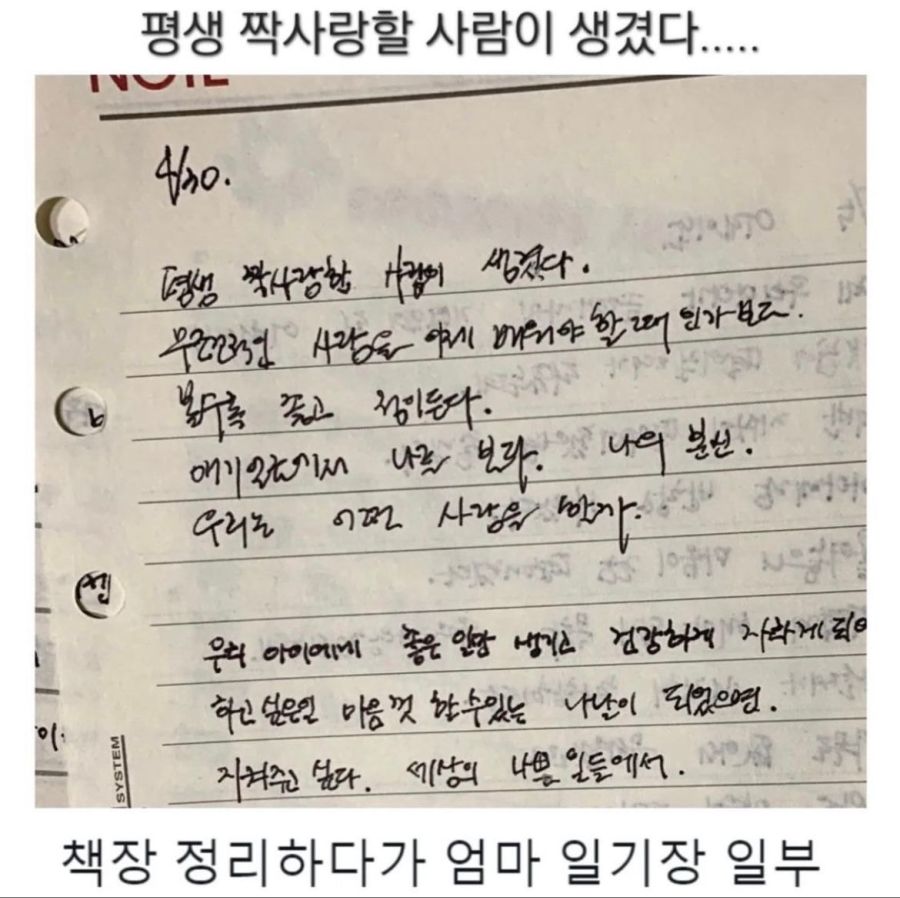 평생 짝사랑할 사람이 생겼다.....
NOTE
4/30.
평생 짝사랑할 사람이 생겼다.
무조건적인 사랑을 이제 배워야 할 때 인가보다.
볼수록 정이든다.
애기 나를 보라. 나의 분신.
우리는 어떤 사랑을 할까.
우리 아이에게 좋은 일만 생기고 건강하게 자라게 되어
하고 싶은일 마음껏 할 수 있는 나날이 되었으면.
지켜주고 싶다. 세상의 나쁜 일들에서.
SYSTEM
책장 정리하다가 엄마 일기장 일부